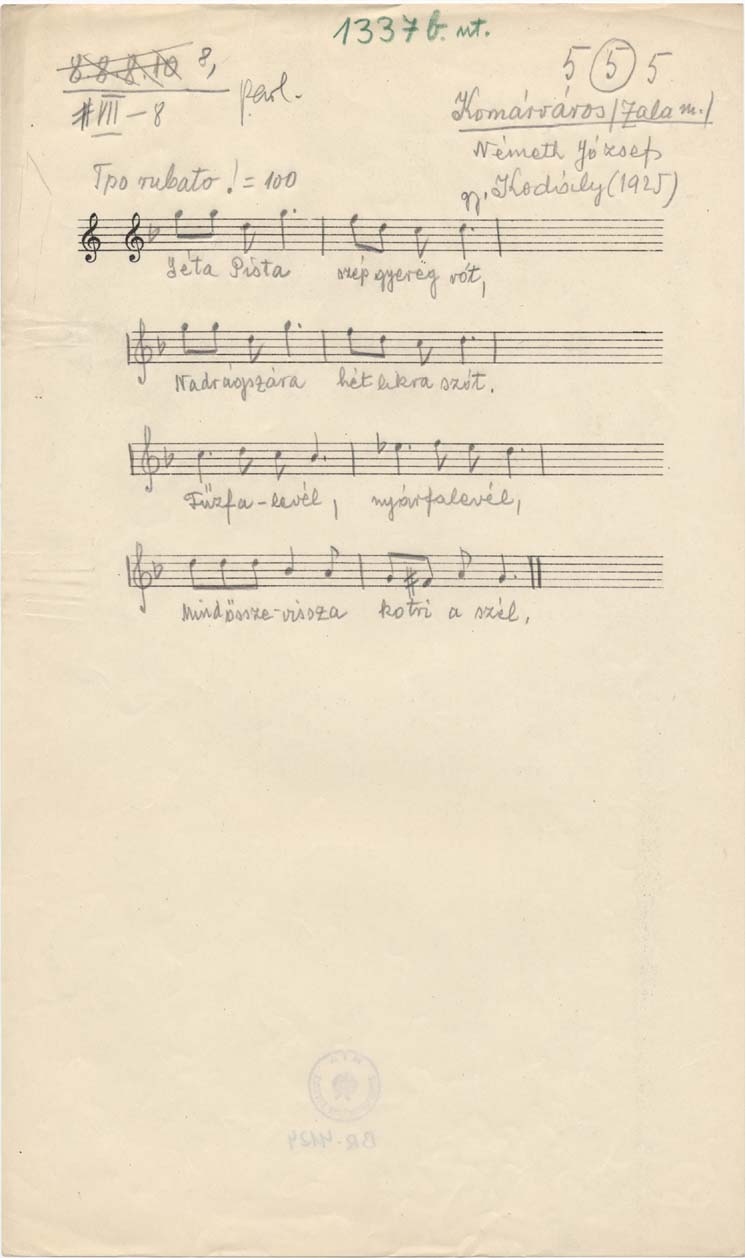 1337 b. nt.
8 8 8 10 8,
#VII – 8 parl.
5 5 5
Komárváros /Zala m./
Németh József
gy. Kodály (1925)
Tpo rubato ♩ = 100
Pista szép gyerëg vót,
Nadrágszára hét likra szót.
Fűzfa-levél, nyárfalevél,
Mind össze-vissza kotri a szél,
BR-4124